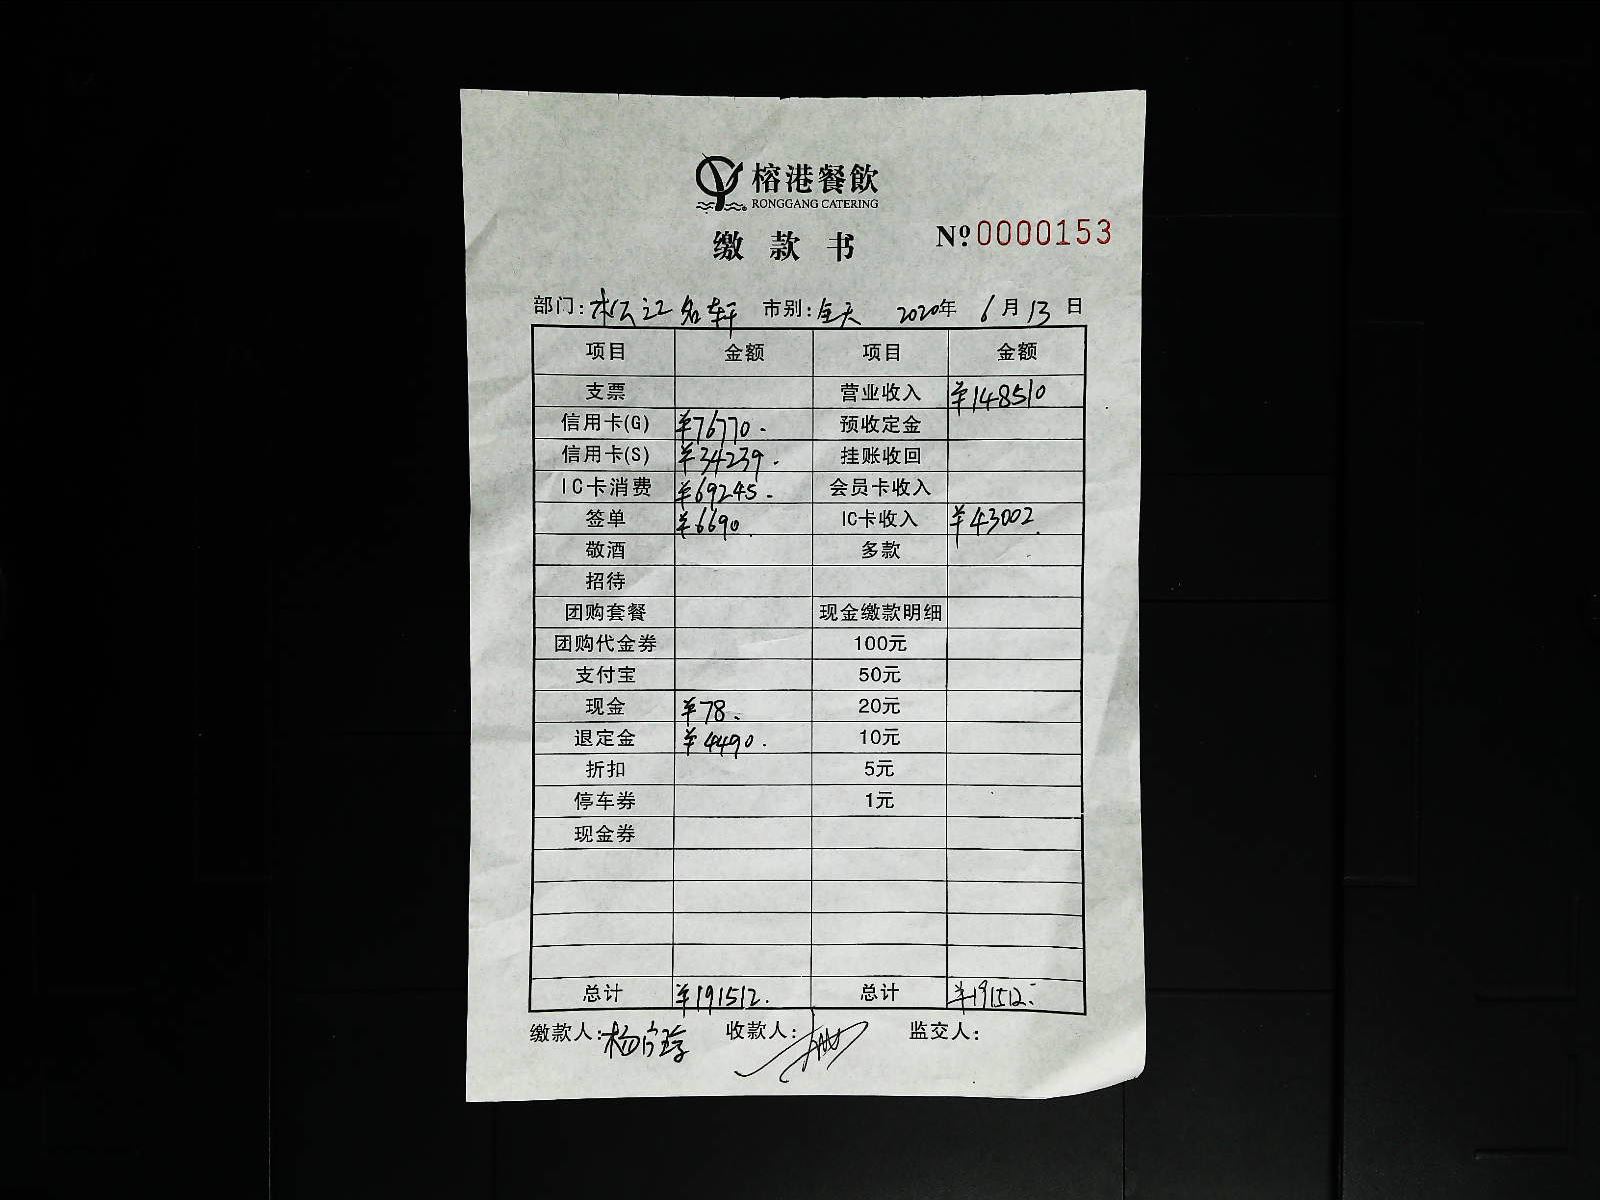 榕港餐飲
RONGGANG CATERING
缴款书 Nº 0000153
部门: 松江名轩 市别: 全天 2020年 6月13日
项目 金额 项目 金额
支票 营业收入 ¥148510
信用卡(G) ¥76770. 预收定金
信用卡(S) ¥34239. 挂账收回
IC卡消费 ¥69245. 会员卡收入
签单 ¥6690. IC卡收入 ¥43002.
敬酒 多款
招待
团购套餐 现金缴款明细
团购代金券 100元
支付宝 50元
现金 ¥78. 20元
退定金 ¥4490. 10元
折扣 5元
停车券 1元
现金券
总计 ¥191512. 总计 ¥191512.
缴款人: 杨 收款人: 监交人: